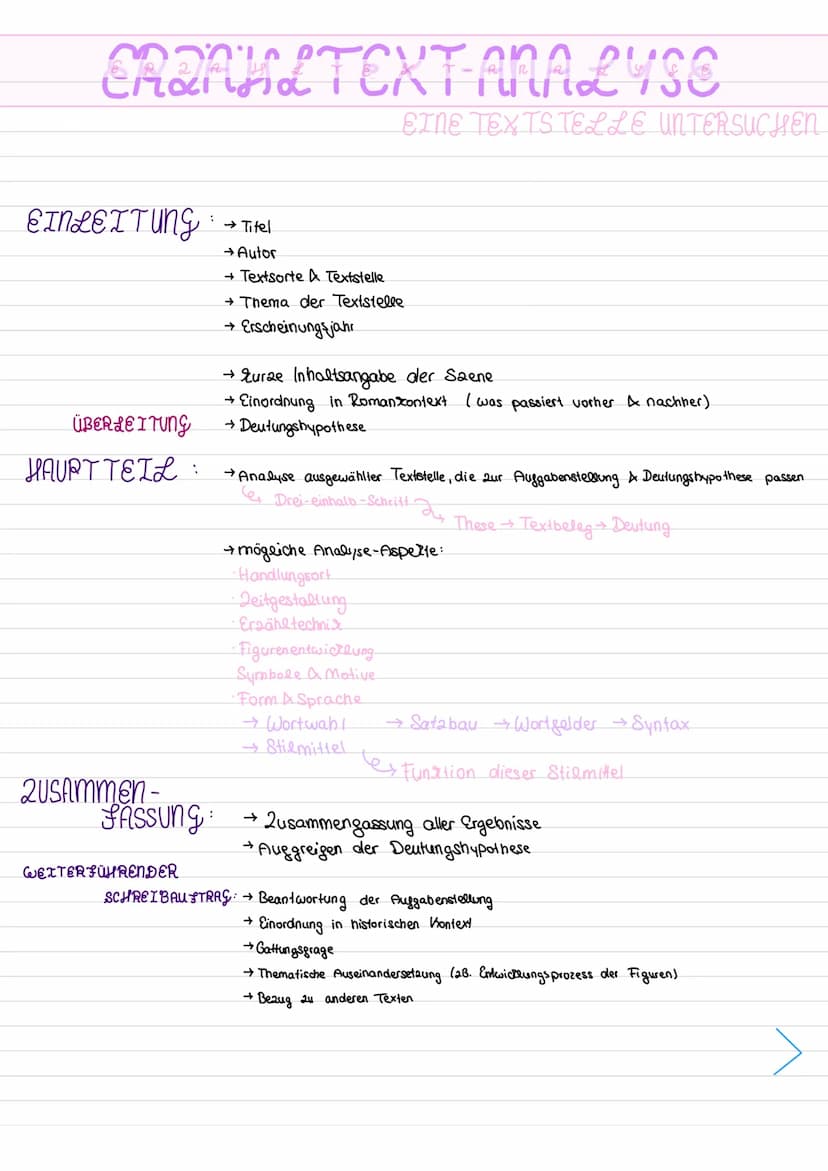 ERZÄHLTEXT-ANALYSE
EINE TEXTSTELLE UNTERSUCHEN
EINLEITUNG: → Titel
→ Autor
→ Textsorte & Textstelle
→ Thema der Textstelle
→ Erscheinungsjahr
→ kurze Inhaltsangabe der Szene
→ Einordnung in Romankontext (was passiert vorher & nachher)
ÜBERLEITUNG → Deutungshypothese
HAUPTTEIL: → Analyse ausgewählter Textstelle, die zur Aufgabenstellung & Deutungshypothese passen
Drei-einhalb-Schritt
These → Textbeleg → Deutung
→ mögliche Analyse-Aspekte:
· Handlungsort
· Zeitgestaltung
· Erzähltechnik
· Figurenentwicklung
Symbole & Motive
· Form & Sprache
→ Wortwahl → Satzbau → Wortfelder → Syntax
→ Stilmittel
→ Funktion dieser Stilmittel
ZUSAMMEN-
FASSUNG: → Zusammenfassung aller Ergebnisse
→ Aufgreifen der Deutungshypothese
WEITERFÜHRENDER
SCHREIBAUFTRAG: → Beantwortung der Aufgabenstellung
→ Einordnung in historischen Kontext
→ Gattungsfrage
→ Thematische Auseinandersetzung (zB. Entwicklungsprozess der Figuren)
→ Bezug zu anderen Texten